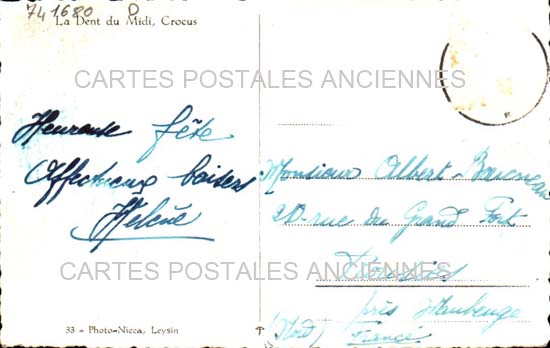 741680 D
La Dent du Midi, Crocus
CARTES POSTALES ANCIENNES
Heureuse fête
Affectueux baisers
Helène
Monsieur Albert
20 rue du Grand Fort
près Maubeuge
(Nord) France
CARTES POSTALES ANCIENNES
33 - Photo-Nicca, Leysin